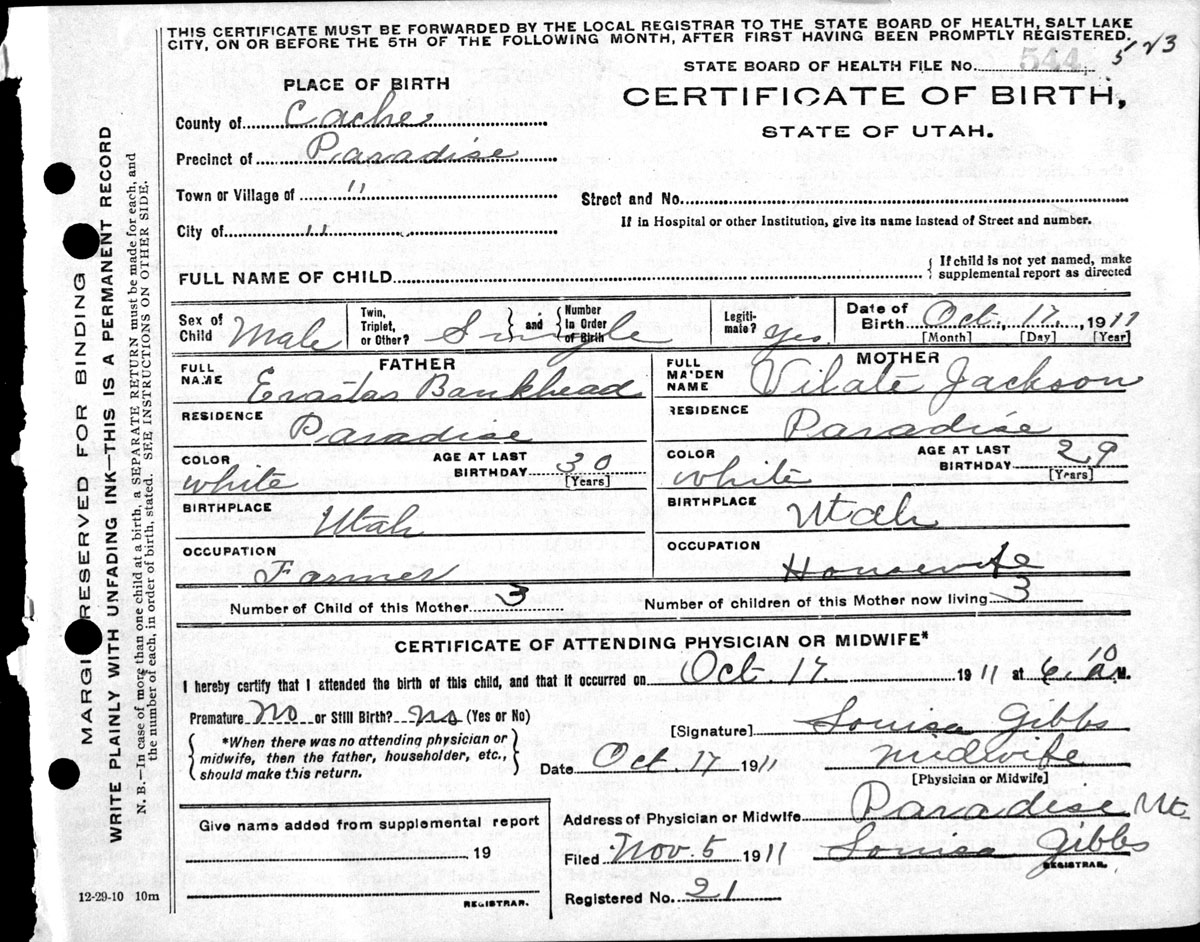 THIS CERTIFICATE MUST BE FORWARDED BY THE LOCAL REGISTRAR TO THE STATE BOARD OF HEALTH, SALT LAKE
CITY, ON OR BEFORE THE 5TH OF THE FOLLOWING MONTH, AFTER FIRST HAVING BEEN PROMPTLY REGISTERED.
STATE BOARD OF HEALTH FILE No. 544 523
PLACE OF BIRTH
CERTIFICATE OF BIRTH,
STATE OF UTAH.
County of Cache
Precinct of Paradise
Town or Village of "
Street and No.
City of "
If in Hospital or other Institution, give its name instead of Street and number.
FULL NAME OF CHILD
If child is not yet named, make
supplemental report as directed
Sex of Child Male
Twin, Triplet, or Other? Single and Number in Order of Birth
Legitimate? Yes
Date of Birth Oct. 17, 1911
[Month] [Day] [Year]
FATHER
FULL NAME Erastas Bankhead
MOTHER
FULL MAIDEN NAME Vilate Jackson
RESIDENCE Paradise
RESIDENCE Paradise
COLOR white AGE AT LAST BIRTHDAY 30 [Years]
COLOR white AGE AT LAST BIRTHDAY 29 [Years]
BIRTHPLACE Utah
BIRTHPLACE Utah
OCCUPATION Farmer
OCCUPATION Housewife
Number of Child of this Mother 3 Number of children of this Mother now living 3
CERTIFICATE OF ATTENDING PHYSICIAN OR MIDWIFE*
I hereby certify that I attended the birth of this child, and that it occurred on Oct. 17 1911 at 6.10 a M.
Premature No or Still Birth? No (Yes or No)
*When there was no attending physician or
midwife, then the father, householder, etc.,
should make this return.
[Signature] Louisa Gibbs
Date Oct. 17 1911 midwife
[Physician or Midwife]
Give name added from supplemental report
19
REGISTRAR.
Address of Physician or Midwife Paradise Ut.
Filed Nov. 5 1911 Louisa Gibbs
REGISTRAR.
Registered No. 21
12-29-10 10m
MARGIN RESERVED FOR BINDING
WRITE PLAINLY WITH UNFADING INK—THIS IS A PERMANENT RECORD
N. B.—In case of more than one child at a birth, a SEPARATE RETURN must be made for each, and
the number of each, in order of birth, stated. SEE INSTRUCTIONS ON OTHER SIDE.